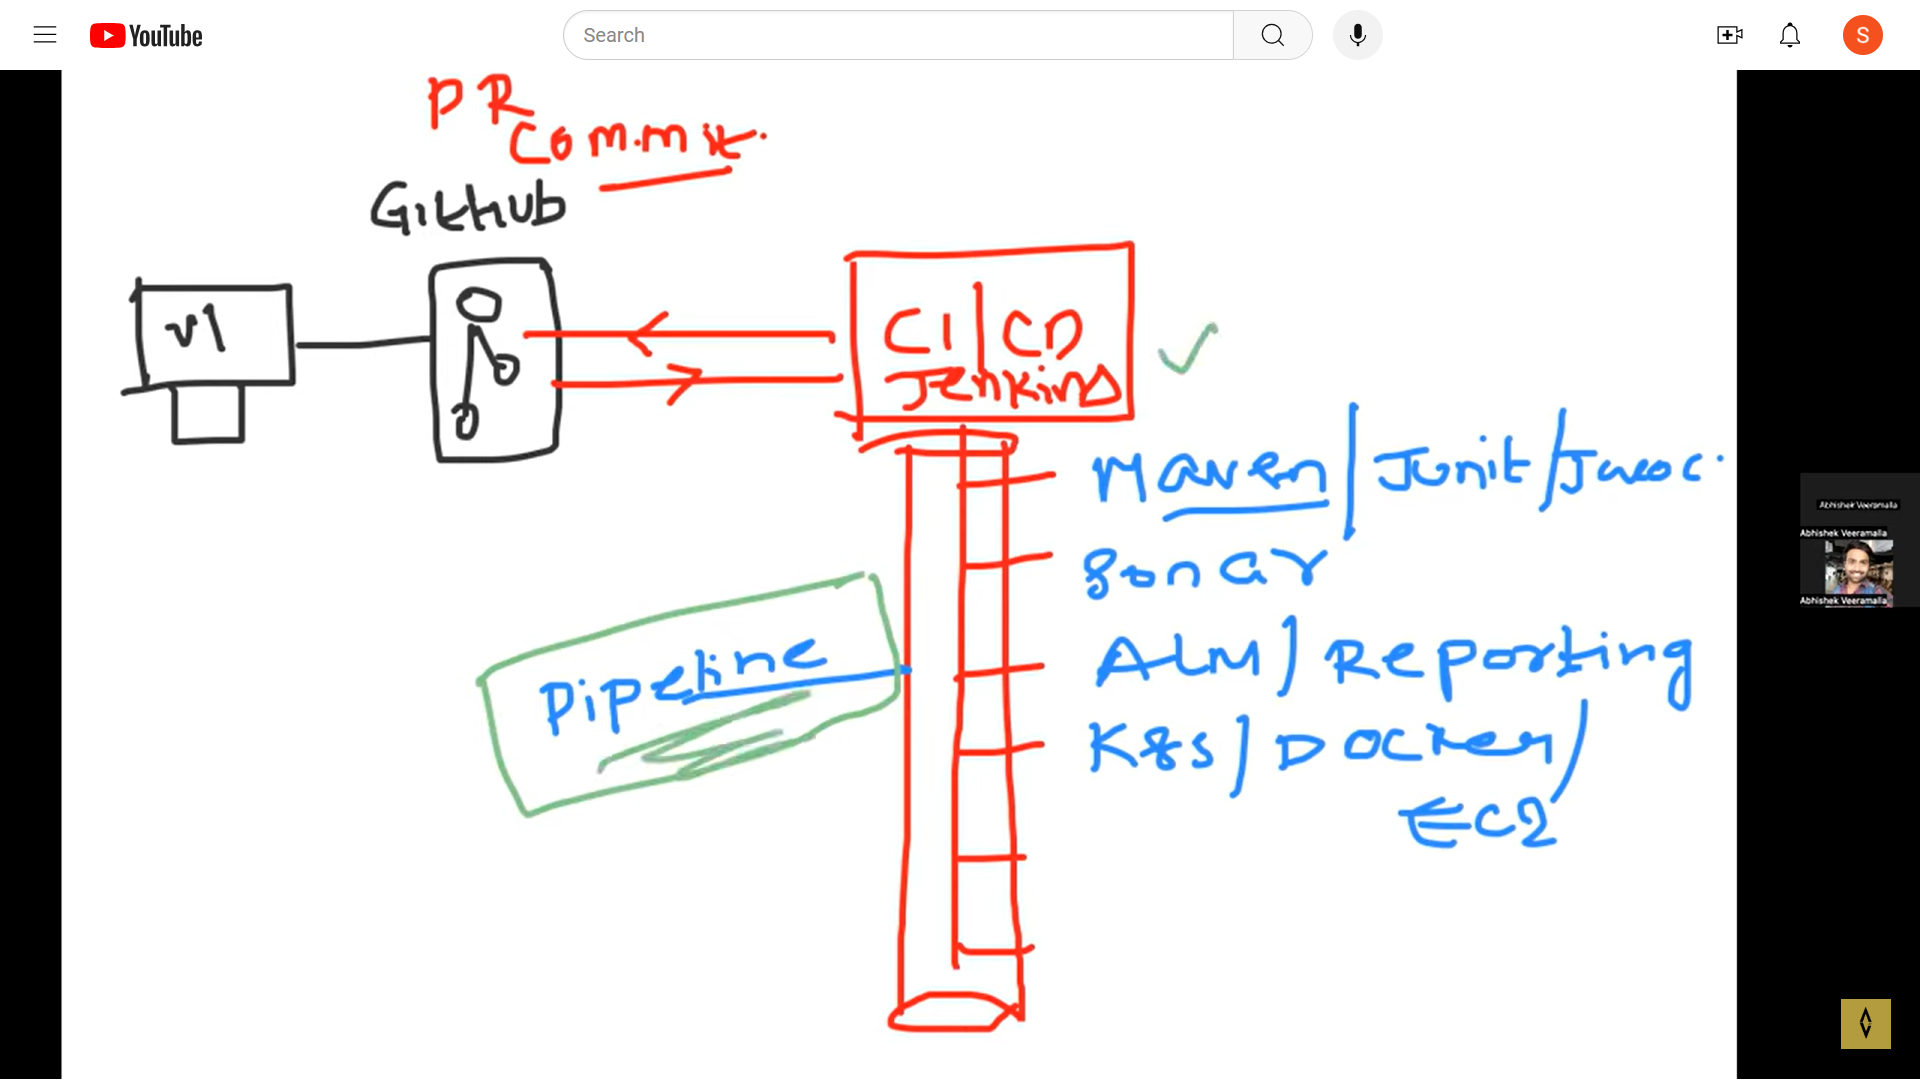 YouTube
Search
S
PR
Commit.
GitHub
v1
CI|CD
Jenkins
Maven/Junit/Jacoc.
Sonar
ALM/Reporting
Pipeline
K8s/Docker/
EC2
Abhishek Veeramalla
Abhishek Veeramalla
Abhishek Veeramalla